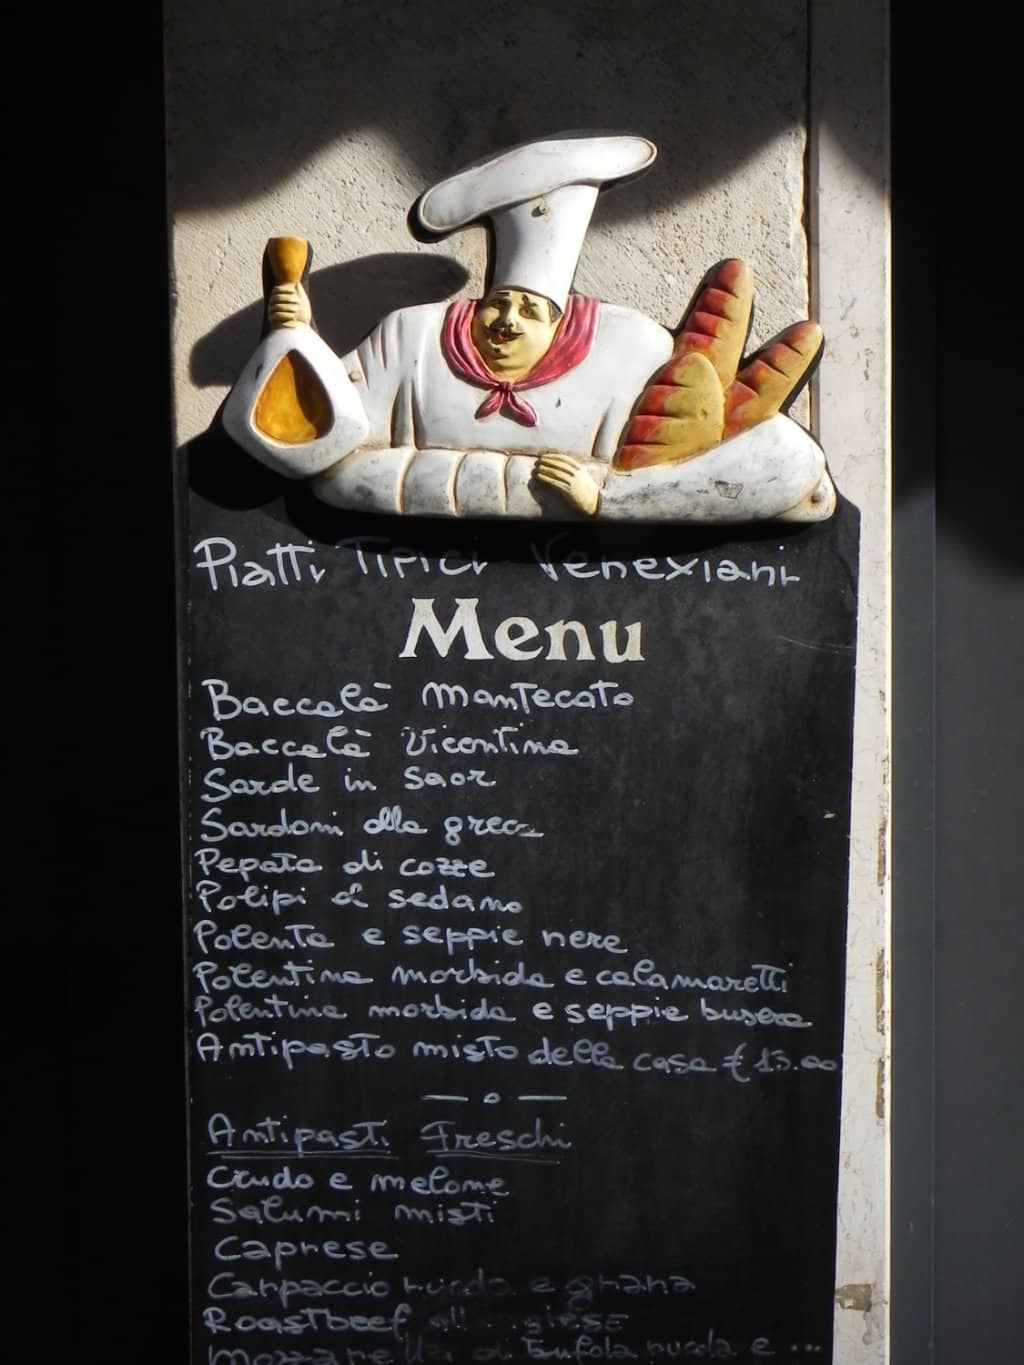 Piatti Tipici Venexiani
Menu
Baccalà Mantecato
Baccalà Vicentina
Sarde in saor
Sardoni alla greca
Pepata di cozze
Polipi e sedano
Polenta e seppie nere
Polentina morbida e calamaretti
Polentina morbida e seppie busera
Antipasto misto della casa € 15.00
Antipasti Freschi
Crudo e melone
Salumi misti
Caprese
Carpaccio rucola e grana
Roastbeef
Mozzarella di bufola rucola e ...